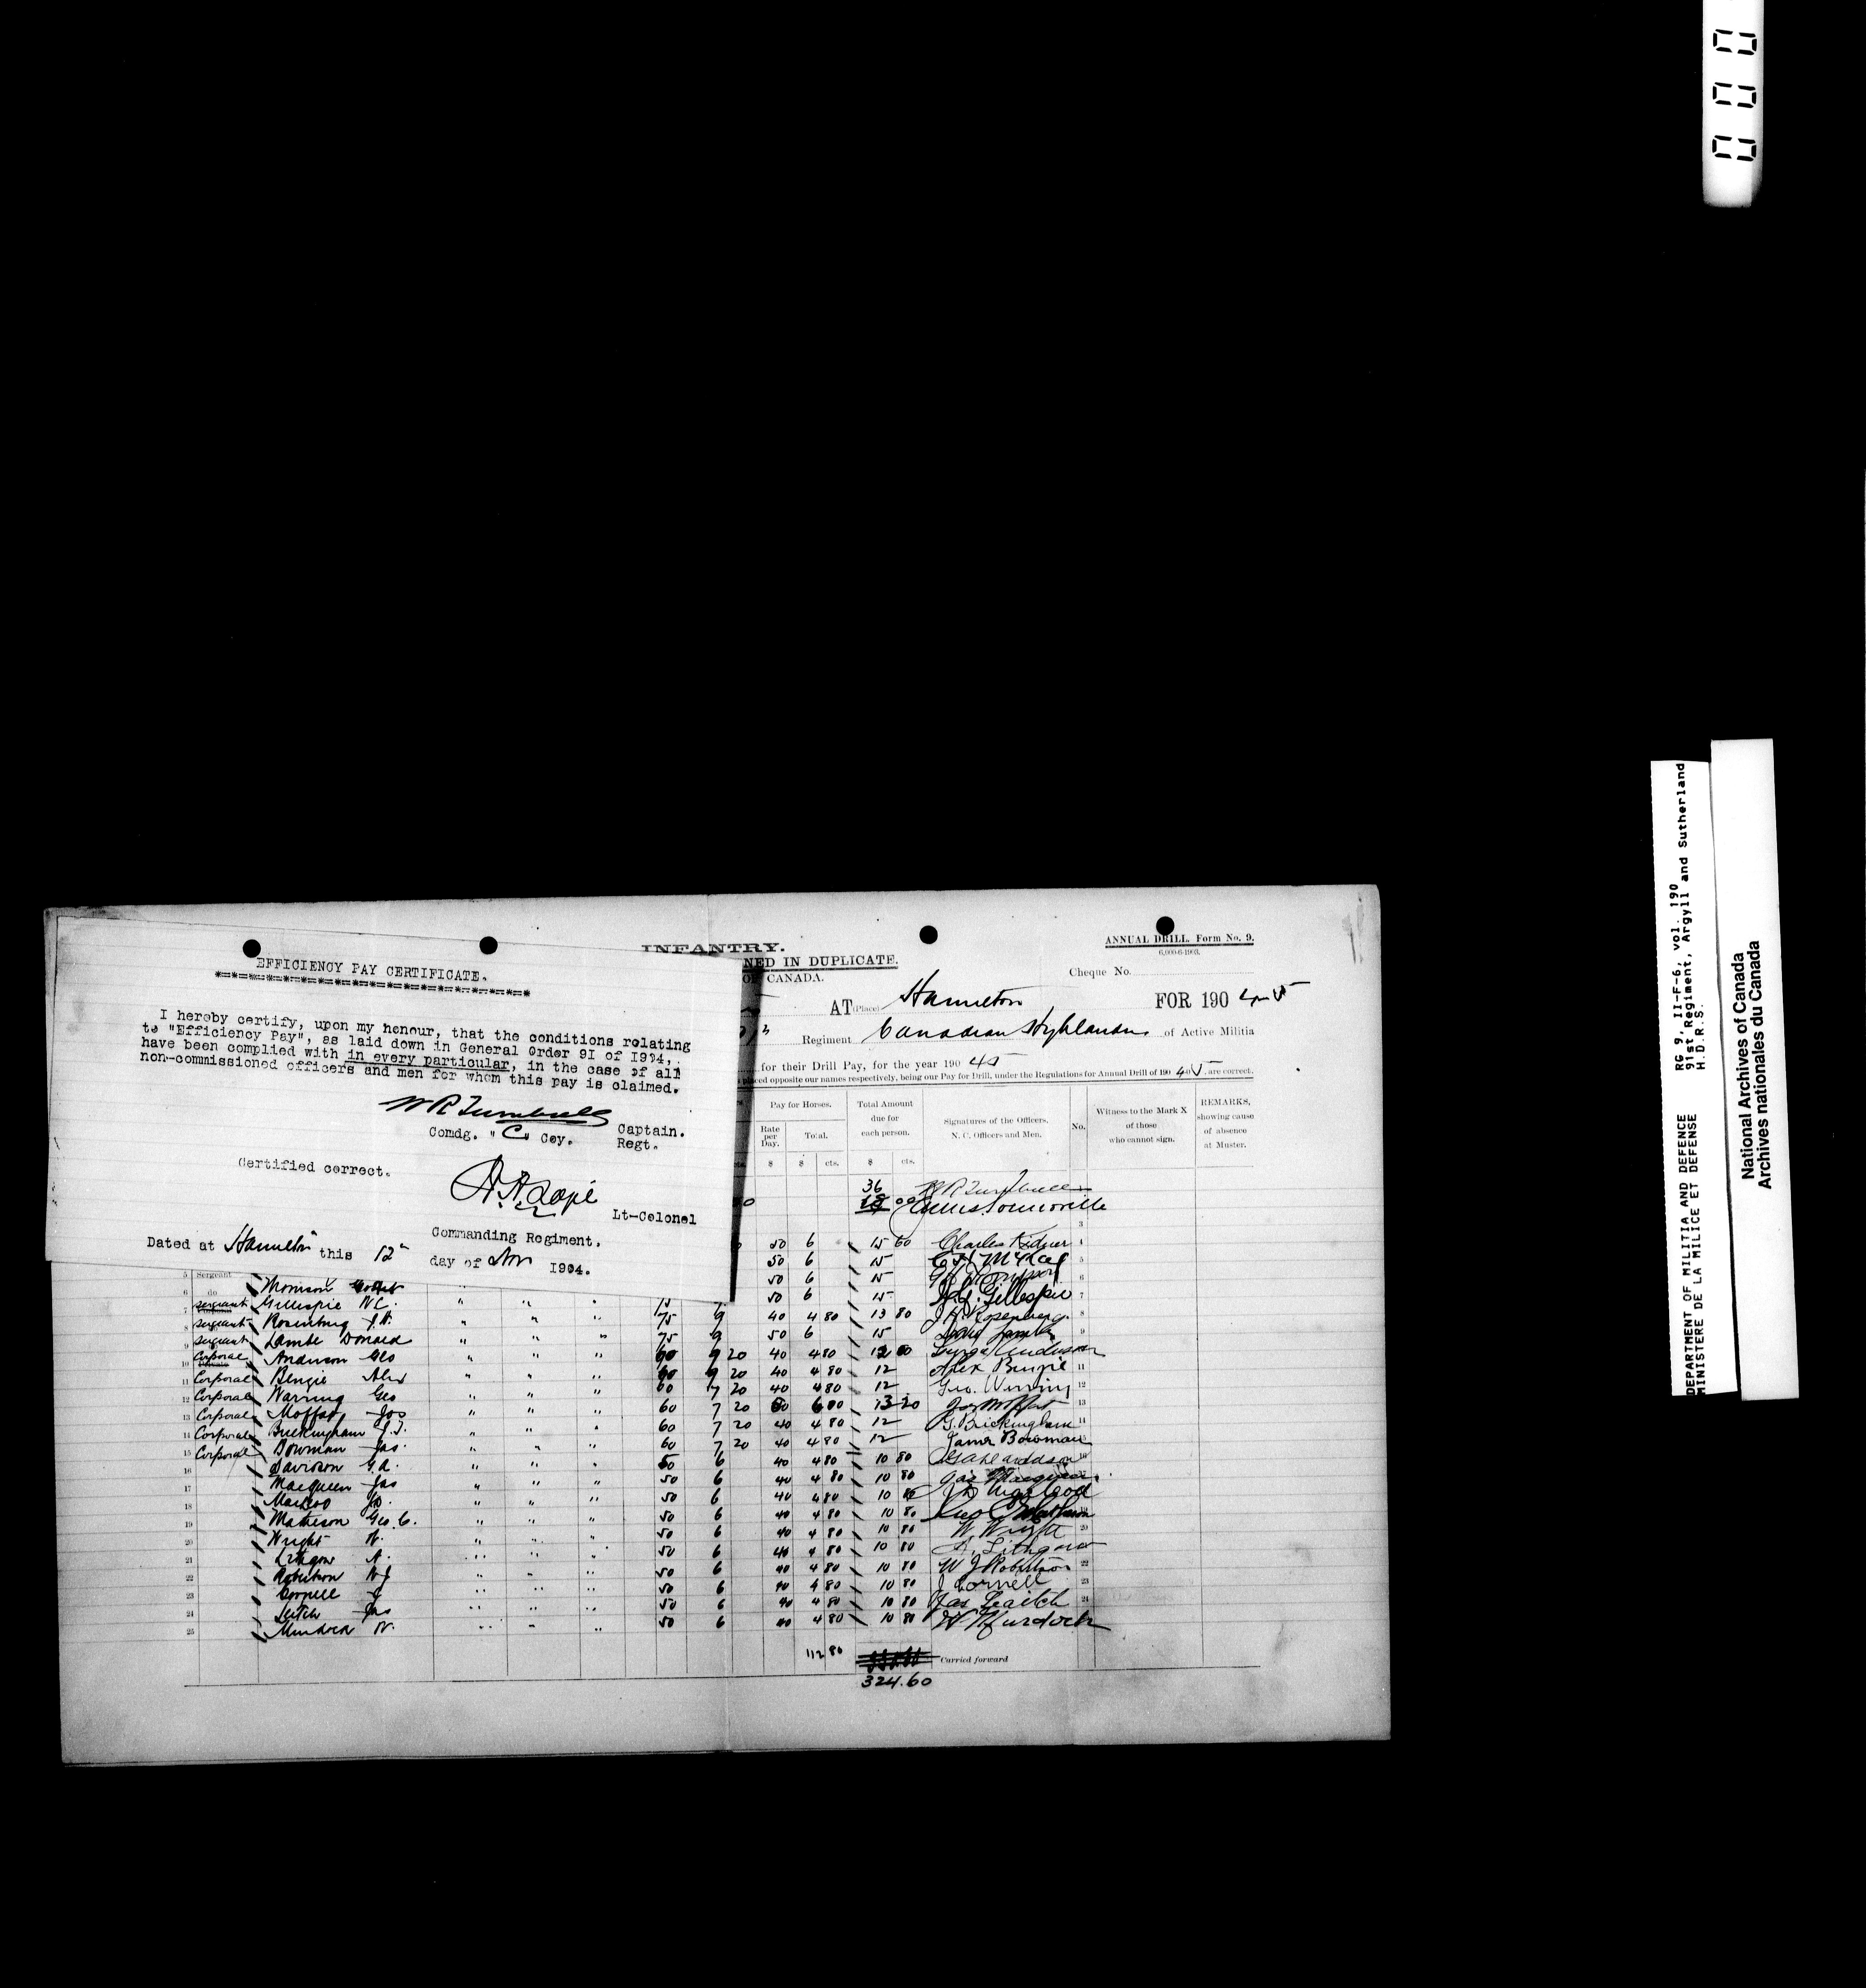 EFFICIENCY PAY CERTIFICATE.
I hereby certify, upon my honour, that the conditions relating
to "Efficiency Pay", as laid down in General Order 9I of I904,
have been complied with in every particular, in the case of all
non-commissioned officers and men for whom this pay is claimed.
W R Turnbull
Captain.
Comdg. "C" Coy. Regt.
Certified correct.
Lt-Colonel
Commanding Regiment.
Dated at Hamilton this 12th day of Nov I904.
INFANTRY.
NED IN DUPLICATE.
OF CANADA.
ANNUAL DRILL. Form No. 9.
6,000-6-1903.
Cheque No.
AT (Place) Hamilton FOR 190 4-5
Regiment Canadian Highlanders of Active Militia
for their Drill Pay, for the year 190 45
placed opposite our names respectively, being our Pay for Drill, under the Regulations for Annual Drill of 190 4-5, are correct.
Pay for Horses. Total Amount due for each person. Signatures of the Officers, N. C. Officers and Men. No. Witness to the Mark X of those who cannot sign. REMARKS, showing cause of absence at Muster.
Rate per Day. Total.
$ $ cts. $ cts.
36 W R Turnbull
18 00 James Somerville
3
50 6 15 60 Charles Kidner 4
5 Sergeant 50 6 15 5
6 do Morrison 50 6 15 6
7 Sergeant Gillespie N.C. " " " 75 9 50 6 15 Gillespie 7
8 Sergeant Rosenburg J.H. " " " 75 9 40 4 80 13 80 J H Rosenberg 8
9 Sergeant Lambe Donald " " " 75 9 50 6 15 9
10 Corporal Anderson Geo " " " 60 9 20 40 4 80 12 00 Anderson
11 Corporal Bengie Alex " " " 60 9 20 40 4 80 12 Alex Bengie 11
12 Corporal Warring Geo " " " 60 7 20 40 4 80 12 Geo. Warring 12
13 Corporal Moffat Jas " " " 60 7 20 50 6 00 13 20 Jas Moffat 13
14 Corporal Buckingham G.J. " " " 60 7 20 40 4 80 12 G. Buckingham 14
15 Corporal Bowman Jas. " " " 60 7 20 40 4 80 12 James Bowman
16 Davidson G.A. " " " 50 6 40 4 80 10 80 16
17 Macqueen Jas " " " 50 6 40 4 80 10 80 Jas Macqueen
18 50 6 40 4 80 10
19 Matheson Geo. C. " " " 50 6 40 4 80 10 80 Geo C Matheson
20 Wright W. " " " 50 6 40 4 80 10 80 W. Wright 20
21 Lithgow A. " " " 50 6 40 4 80 10 80 A. Lithgow
22 Robertson W J " " " 50 6 40 4 80 10 80 W J Robertson 22
23 Cornell J " " " 50 6 40 4 80 10 80 J Cornell 23
24 Leitch Jas " " " 50 6 40 4 80 10 80 Jas Leitch 24
25 Murdock W. " " " 50 6 40 4 80 10 80 W Murdock
112 80 Carried forward
324.60
DEPARTMENT OF MILITIA AND DEFENCE
MINISTERE DE LA MILICE ET DEFENSE
RG 9, II-F-6, vol. 190
91st Regiment, Argyll and Sutherland
H.D.R.S.
National Archives of Canada
Archives nationales du Canada